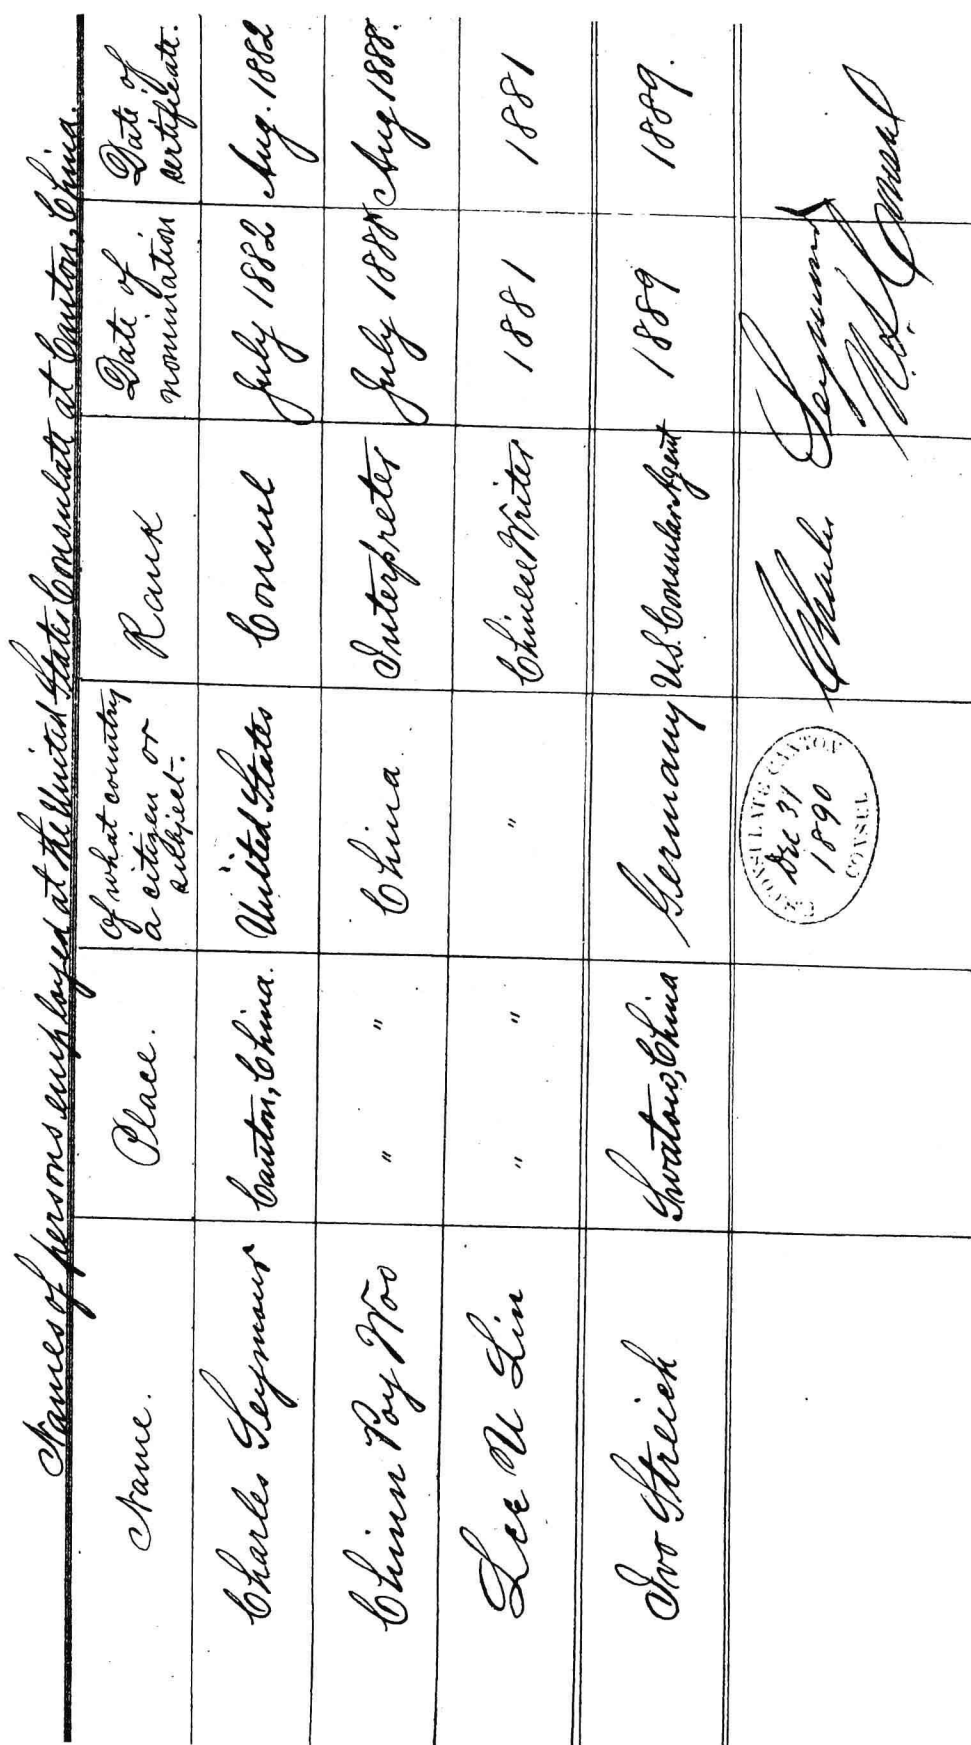 Names of persons employed at the United States Consulate at Canton, China.
Name. Place. Of what country a citizen or subject. Rank Date of nomination Date of certificate.
Charles Seymour Canton, China. United States Consul July 1882 Aug. 1882
Chinn Poy Woo " " China Interpreter July 1888 Aug 1888.
Lee U Lin " " " Chinese Writer 1881 1881
Ivo Streich Swatow, China Germany U.S. Consular Agent 1889 1889.
CONSULATE CANTON
Dec 31
1890
CONSUL
Charles Seymour
U.S. Consul